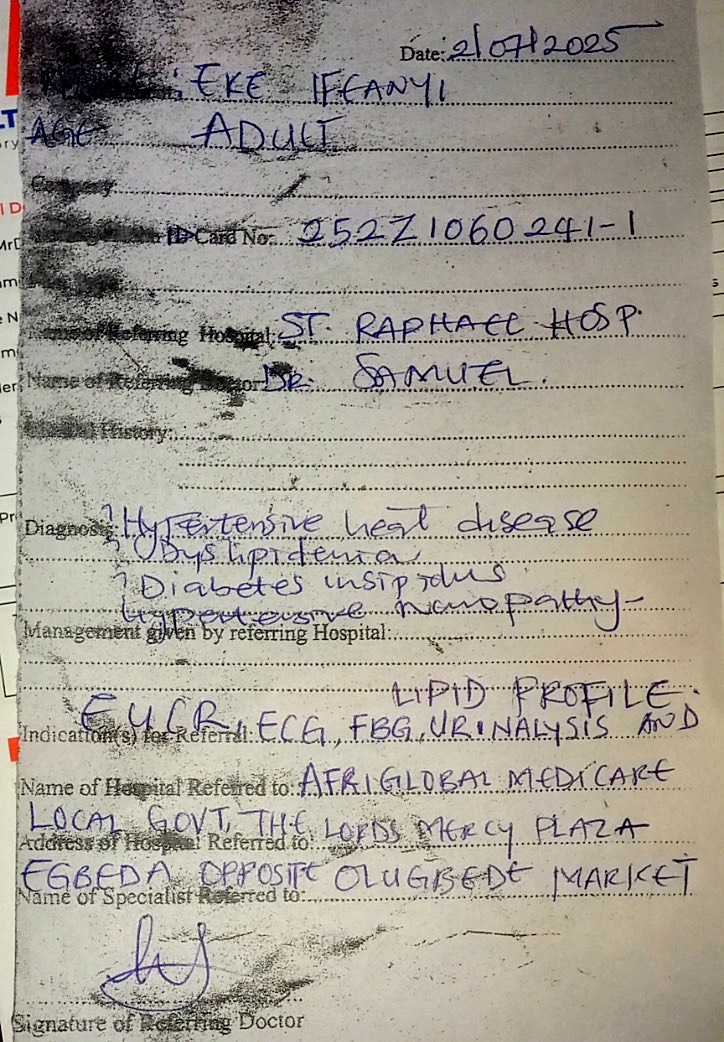 Date: 2/07/2025
: EKE IFEANYI
AGE ADULT
Company
ID Card No: 252Z1060241-1
Name of Referring Hospital: ST. RAPHAEL HOSP.
Name of Referring Doctor DR. SAMUEL.
History:
Diagnosis: ? Hypertensive heart disease
? Dyslipidemia
? Diabetes insipidus
Hypertensive
Management given by referring Hospital:
LIPID PROFILE.
Indication(s) for Referral: EUCR, ECG, FBG, URINALYSIS AND
Name of Hospital Referred to: AFRIGLOBAL MEDICARE
LOCAL GOVT, THE LORDS MERCY PLAZA
Address of Hospital Referred to:
EGBEDA OPPOSITE OLUGBEDE MARKET
Name of Specialist Referred to:
Signature of Referring Doctor